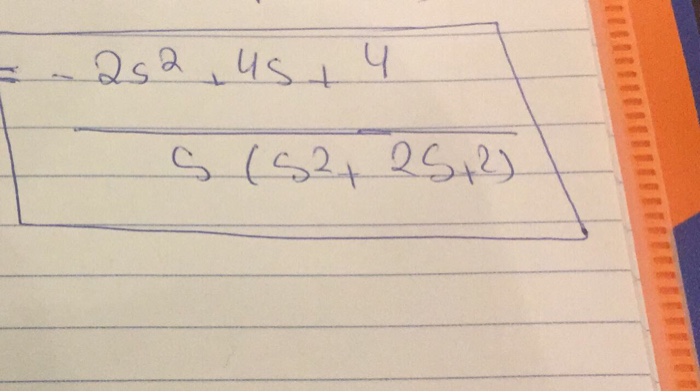 = - 2s² + 4s + 4
s (s2 + 2s + 2)